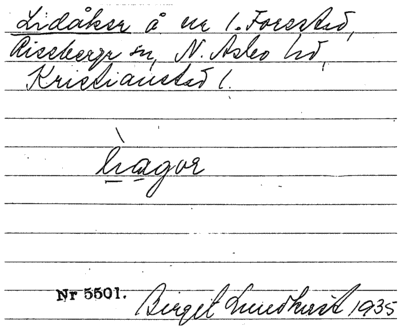 Lidåker å nr 1. Forestad,
Riseberga sn, N. Åsbo hd,
Kristianstad l.
hagor
Nr 5501. Birgit Lundkvist 1935